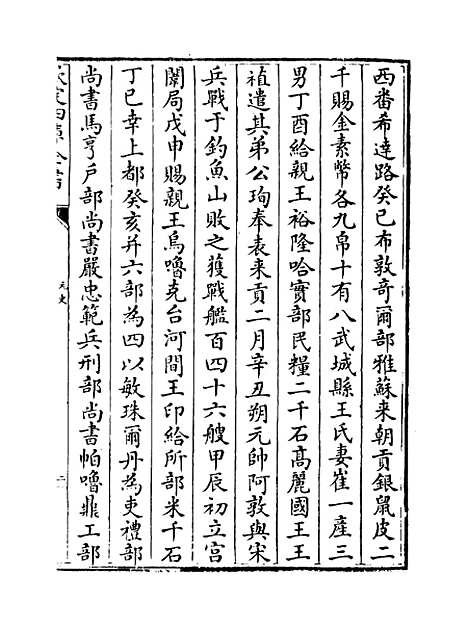 西番希達路癸巳布敦奇爾部雅蘇来朝貢銀鼠皮二
千賜金素幣各九帛十有八武城縣王氏妻崔一産三
男丁酉給親王裕隆哈實部民糧二千石髙麗國王王
禃遣其弟公珣奉表来貢二月辛丑朔元帥阿敦與宋
兵戰于釣魚山敗之獲戰艦百四十六艘甲辰初立宫
闈局戊申賜親王烏嚕克台河間王印給所部米千石
丁巳幸上都癸亥并六部為四以敏珠爾丹為吏禮部
尚書馬亨戶部尚書嚴忠範兵刑部尚書帕嚕鼎工部
欽定四庫全書
元史
二